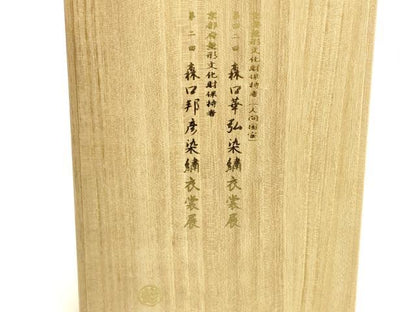 重要無形文化財保持者(人間国宝)
第四二回 森口華弘染繍衣裳展
京都府無形文化財保持者
第二回 森口邦彦染繍衣裳展